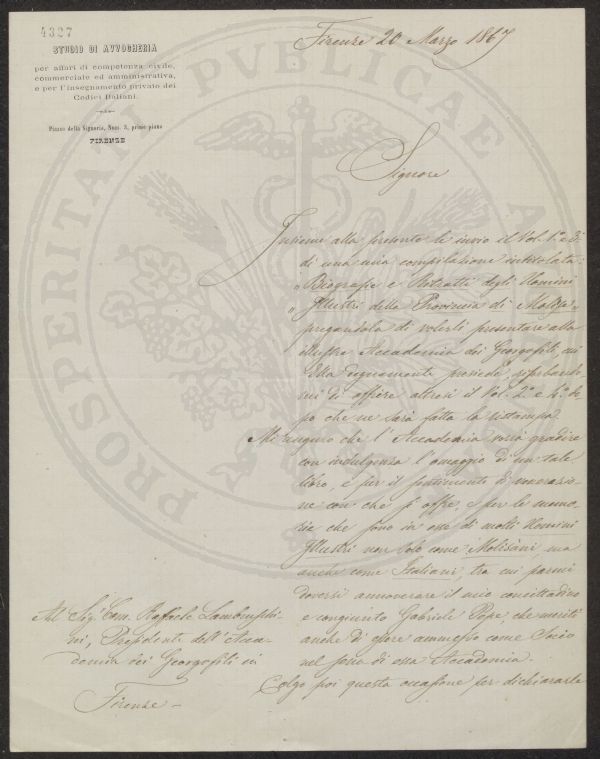 4327
STUDIO DI AVVOCHERIA
per affari di competenza civile,
commerciale ed amministrativa,
e per l'insegnamento privato dei
Codici Italiani.
Piazza della Signoria, Num. 3, primo piano
FIRENZE
Firenze 20 Marzo 1867
Signore
Insieme alla presente le invio il Vol. 1º e 3º
di una mia compilazione intitolata:
"Biografie e Ritratti degli Uomini
"Illustri della Provincia di Molise"
pregandola di volerli presentare alla
illustre Accademia dei Georgofili, cui
Ella degnamente presiede, riserbando
mi di offrire altresì il Vol. 2º e 4º do
po che ne sarà fatta la ristampa.
Mi auguro che l'Accademia vorrà gradire
con indulgenza l'omaggio di un tale
libro, e per il sentimento di venerazio
ne con che si offre, e per le memo
rie che sono in esse di molti Uomini
Illustri non solo come Molisani, ma
anche come Italiani, tra cui parmi
doversi annoverare il mio concittadino
e congiunto Gabriele Pepe che meritò
anche di essere ammesso come Socio
nel seno di essa Accademia.
Colgo poi questa occasione per dichiararle
Al Sig. Com. Raffaele Lambruschi
ni, Presidente dell'Acca
demia dei Georgofili in
Firenze
PROSPERITATI PUBLICAE A